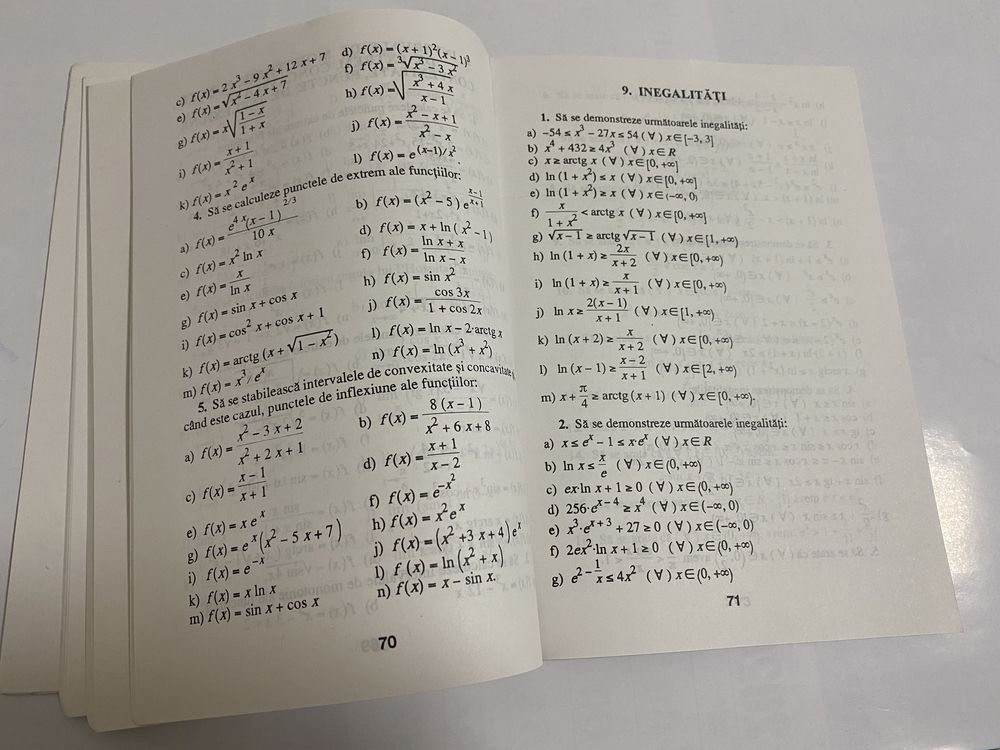 c) f(x) = 2x³ − 9x² + 12x + 7
d) f(x) = (x + 1)²(x − 1)³
e) f(x) = √(x² − 4x + 7)
f) f(x) = ³√(x³ − 3x²)
g) f(x) = x√((1 − x)/(1 + x))
h) f(x) = √((x³ + 4x)/(x − 1))
i) f(x) = (x + 1)/(x² + 1)
j) f(x) = (x² − x + 1)/(x² − x)
k) f(x) = x² eˣ
l) f(x) = e^((x−1)/x²)
4. Să se calculeze punctele de extrem ale funcțiilor:
a) f(x) = e^(4x)(x − 1)^(2/3)/(10x)
b) f(x) = (x² − 5) e^((x−1)/(x+1))
c) f(x) = x² ln x
d) f(x) = x + ln (x² − 1)
e) f(x) = x/(ln x)
f) f(x) = (ln x + x)/(ln x − x)
g) f(x) = sin x + cos x
h) f(x) = sin x²
i) f(x) = cos² x + cos x + 1
j) f(x) = (cos 3x)/(1 + cos 2x)
k) f(x) = arctg (x + √(1 − x²))
l) f(x) = ln x − 2·arctg x
m) f(x) = x³/eˣ
n) f(x) = ln (x³ + x²)
5. Să se stabilească intervalele de convexitate și concavitate
când este cazul, punctele de inflexiune ale funcțiilor:
a) f(x) = (x² − 3x + 2)/(x² + 2x + 1)
b) f(x) = 8(x − 1)/(x² + 6x + 8)
c) f(x) = (x − 1)/(x + 1)
d) f(x) = (x + 1)/(x − 2)
e) f(x) = x eˣ
f) f(x) = e^(−x²)
g) f(x) = eˣ(x² − 5x + 7)
h) f(x) = x²eˣ
i) f(x) = e^(−x)
j) f(x) = (x² + 3x + 4) eˣ
k) f(x) = x ln x
l) f(x) = ln(x² + x)
m) f(x) = sin x + cos x
n) f(x) = x − sin x.
70
9. INEGALITĂȚI
1. Să se demonstreze următoarele inegalități:
a) −54 ≤ x³ − 27x ≤ 54 (∀) x∈[−3, 3]
b) x⁴ + 432 ≥ 4x³ (∀) x∈R
c) x ≥ arctg x (∀) x∈[0, +∞]
d) ln (1 + x²) ≤ x (∀) x∈[0, +∞]
e) ln (1 + x²) ≥ x (∀) x∈(−∞, 0)
f) x/(1 + x²) < arctg x (∀) x∈[0, +∞]
g) √(x − 1) ≥ arctg √(x − 1) (∀) x∈[1, +∞)
h) ln (1 + x) ≥ 2x/(x + 2) (∀) x∈[0, +∞)
i) ln (1 + x) ≥ x/(x + 1) (∀) x∈[0, +∞)
j) ln x ≥ 2(x − 1)/(x + 1) (∀) x∈[1, +∞)
k) ln (x + 2) ≥ x/(x + 2) (∀) x∈[0, +∞)
l) ln (x − 1) ≥ (x − 2)/(x + 1) (∀) x∈[2, +∞)
m) x + π/4 ≥ arctg (x + 1) (∀) x∈[0, +∞).
2. Să se demonstreze următoarele inegalități:
a) x ≤ eˣ − 1 ≤ xeˣ (∀) x∈R
b) ln x ≤ x/e (∀) x∈(0, +∞)
c) ex·ln x + 1 ≥ 0 (∀) x∈(0, +∞)
d) 256·e^(x − 4) ≥ x⁴ (∀) x∈(−∞, 0)
e) x³·e^(x + 3) + 27 ≥ 0 (∀) x∈(−∞, 0)
f) 2ex²·ln x + 1 ≥ 0 (∀) x∈(0, +∞)
g) e^(2 − 1/x) ≤ 4x² (∀) x∈(0, +∞)
71